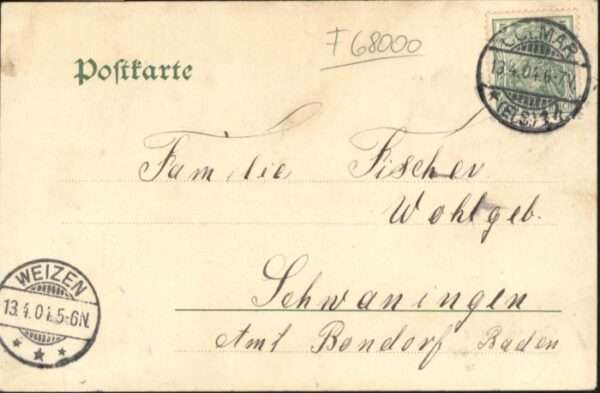 F 68000
COLMAR
Postkarte
13.4.04.6-7V.
* (ELS.)
Familie Fischer
Wohlgeb.
WEIZEN
13.4.04.5-6N.
* * *
Schwaningen
Amt Bondorf Baden